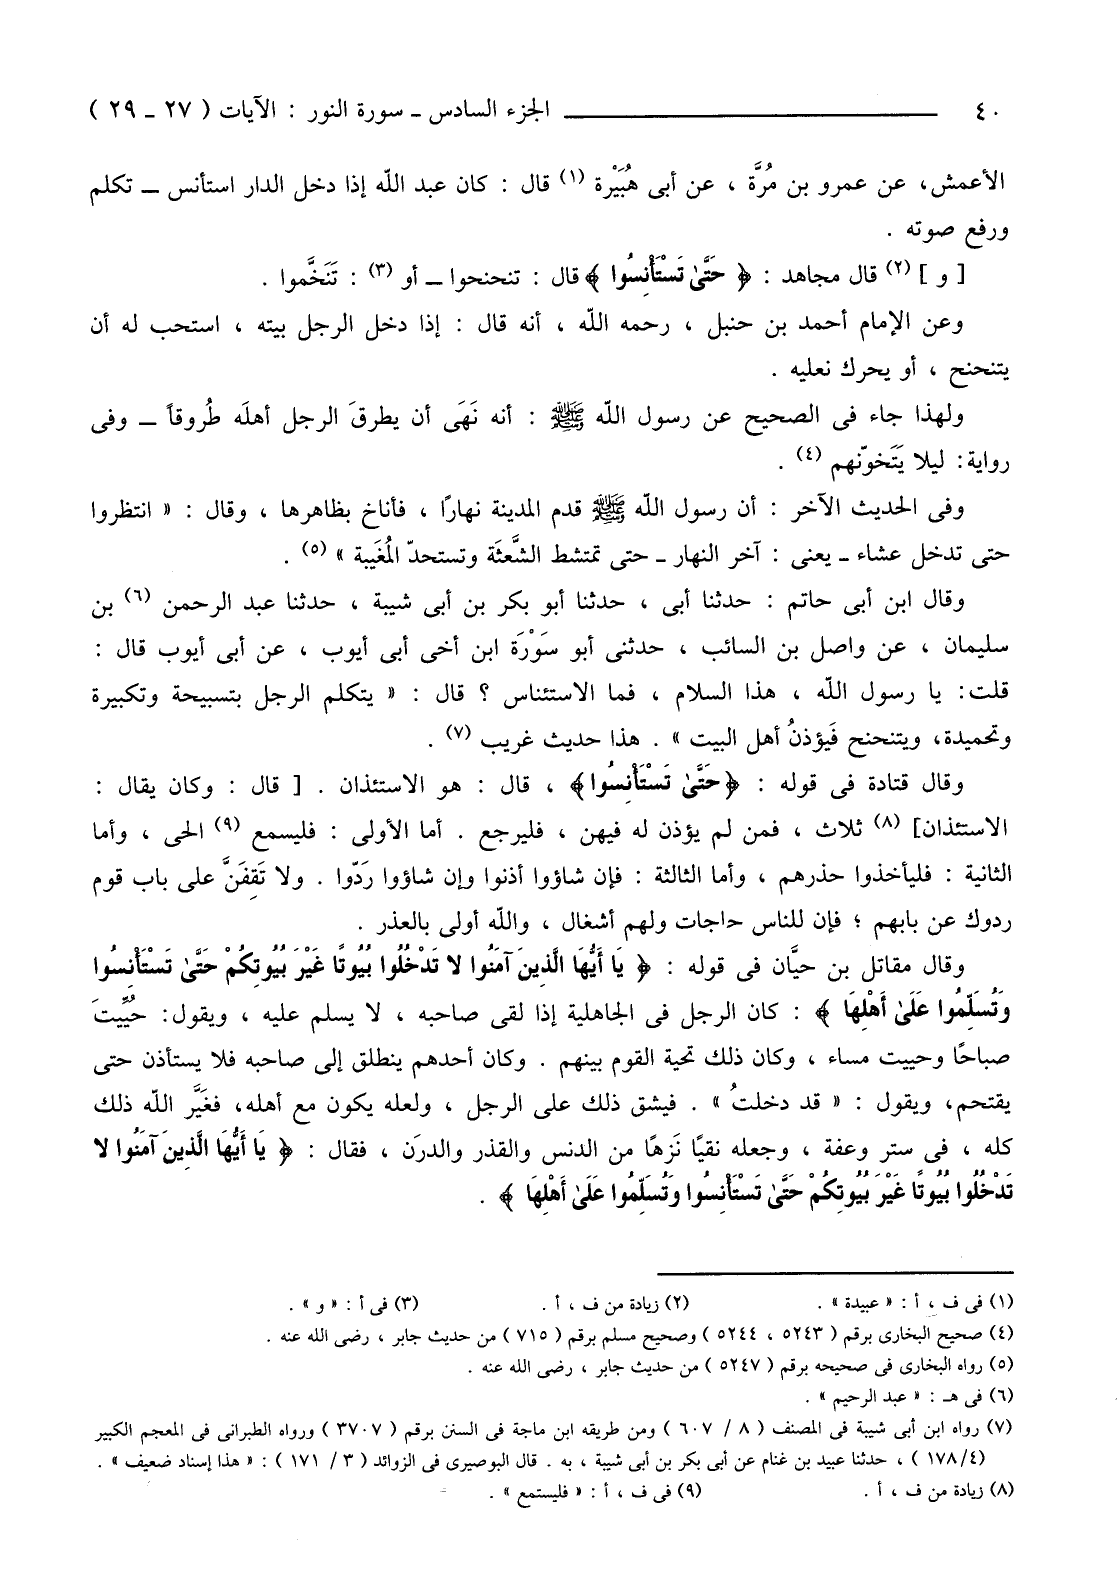 ٤٠ ــــــــــــــــ الجزء السادس ـ سورة النور : الآيات ( ٢٧ ـ ٢٩ )
الأعمش، عن عمرو بن مُرَّة ، عن أبى هُبَيْرة (١) قال : كان عبد الله إذا دخل الدار استأنس ــ تكلم
ورفع صوته .
[ و ] (٢) قال مجاهد : ﴿ حَتَّىٰ تَسْتَأْنِسُوا ﴾ قال : تنحنحوا ــ أو (٣) : تَنَخَّموا .
وعن الإمام أحمد بن حنبل ، رحمه الله ، أنه قال : إذا دخل الرجل بيته ، استحب له أن
يتنحنح ، أو يحرك نعليه .
ولهذا جاء فى الصحيح عن رسول الله ﷺ : أنه نَهَى أن يطرقَ الرجل أهلَه طُروقاً ــ وفى
رواية: ليلا يَتَخوّنهم (٤) .
وفى الحديث الآخر : أن رسول الله ﷺ قدم المدينة نهارًا ، فأناخ بظاهرها ، وقال : « انتظروا
حتى تدخل عشاء ـ يعنى : آخر النهار ـ حتى تمتشط الشَّعثَة وتستحدّ المُغَيبة » (٥) .
وقال ابن أبى حاتم : حدثنا أبى ، حدثنا أبو بكر بن أبى شيبة ، حدثنا عبد الرحمن (٦) بن
سليمان ، عن واصل بن السائب ، حدثنى أبو سَوْرَة ابن أخى أبى أيوب ، عن أبى أيوب قال :
قلت: يا رسول الله ، هذا السلام ، فما الاستئناس ؟ قال : « يتكلم الرجل بتسبيحة وتكبيرة
وتحميدة، ويتنحنح فَيؤذنُ أهل البيت » . هذا حديث غريب (٧) .
وقال قتادة فى قوله : ﴿حَتَّىٰ تَسْتَأْنِسُوا﴾ ، قال : هو الاستئذان . [ قال : وكان يقال :
الاستئذان] (٨) ثلاث ، فمن لم يؤذن له فيهن ، فليرجع . أما الأولى : فليسمع (٩) الحى ، وأما
الثانية : فليأخذوا حذرهم ، وأما الثالثة : فإن شاؤوا أذنوا وإن شاؤوا رَدّوا . ولا تَقِفَنَّ على باب قوم
ردوك عن بابهم ؛ فإن للناس حاجات ولهم أشغال ، والله أولى بالعذر .
وقال مقاتل بن حيَّان فى قوله : ﴿ يَا أَيُّهَا الَّذِينَ آمَنُوا لا تَدْخُلُوا بُيُوتًا غَيْرَ بُيُوتِكُمْ حَتَّىٰ تَسْتَأْنِسُوا
وَتُسَلِّمُوا عَلَىٰ أَهْلِهَا ﴾ : كان الرجل فى الجاهلية إذا لقى صاحبه ، لا يسلم عليه ، ويقول: حُيِّيتَ
صباحًا وحييت مساء ، وكان ذلك تحية القوم بينهم . وكان أحدهم ينطلق إلى صاحبه فلا يستأذن حتى
يقتحم، ويقول : « قد دخلتُ » . فيشق ذلك على الرجل ، ولعله يكون مع أهله، فغَيَّر الله ذلك
كله ، فى ستر وعفة ، وجعله نقيًا نَزهًا من الدنس والقذر والدرَن ، فقال : ﴿ يَا أَيُّهَا الَّذِينَ آمَنُوا لا
تَدْخُلُوا بُيُوتًا غَيْرَ بُيُوتِكُمْ حَتَّىٰ تَسْتَأْنِسُوا وَتُسَلِّمُوا عَلَىٰ أَهْلِهَا ﴾ .
(١) فى ف ، أ : « عبيدة » . (٢) زيادة من ف ، أ . (٣) فى أ : « و » .
(٤) صحيح البخارى برقم ( ٥٢٤٣ ، ٥٢٤٤ ) وصحيح مسلم برقم ( ٧١٥ ) من حديث جابر ، رضى الله عنه .
(٥) رواه البخارى فى صحيحه برقم ( ٥٢٤٧ ) من حديث جابر ، رضى الله عنه .
(٦) فى هـ : « عبد الرحيم » .
(٧) رواه ابن أبى شيبة فى المصنف ( ٨ / ٦٠٧ ) ومن طريقه ابن ماجة فى السنن برقم ( ٣٧٠٧ ) ورواه الطبرانى فى المعجم الكبير
(١٧٨/٤ ) ، حدثنا عبيد بن غنام عن أبى بكر بن أبى شيبة ، به . قال البوصيرى فى الزوائد ( ٣ / ١٧١ ) : « هذا إسناد ضعيف » .
(٨) زيادة من ف ، أ . (٩) فى ف ، أ : « فليستمع » .